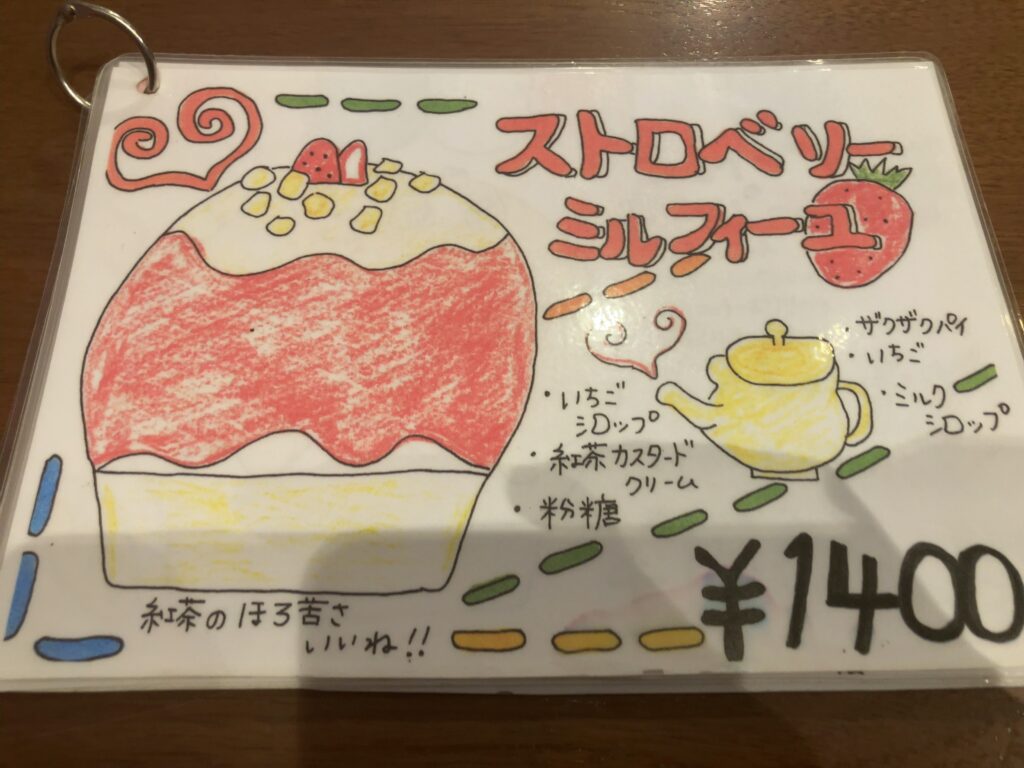 ストロベリー
ミルフィーユ
・ザクザクパイ
・いちご
・ミルク
シロップ
・いちご
シロップ
・紅茶カスタード
クリーム
・粉糖
¥1400
紅茶のほろ苦さ
いいね!!